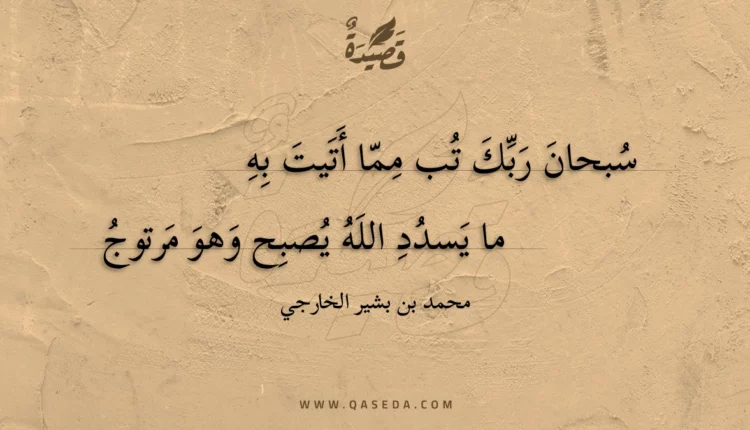 قَصِيدَةٌ
سُبحانَ رَبِّكَ تُب مِمّا أَتَيتَ بِهِ
ما يَسدُدِ اللَهُ يُصبِح وَهوَ مَرتوجُ
محمد بن بشير الخارجي
WWW.QASEDA.COM